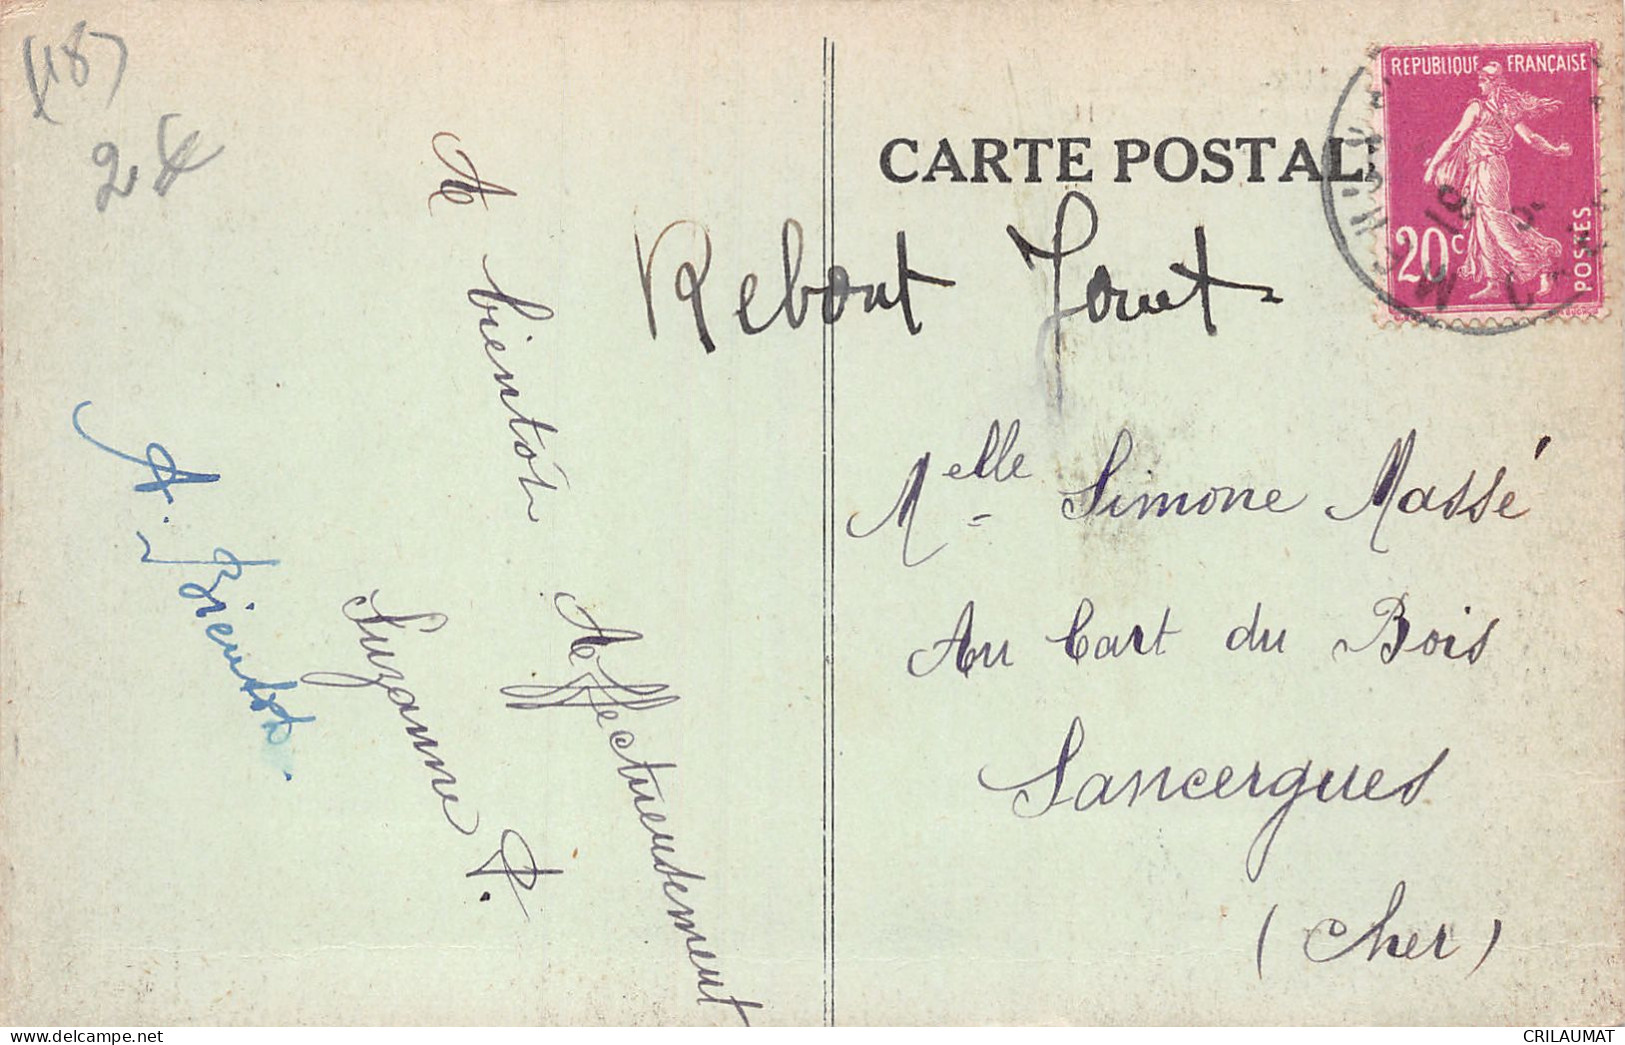 (18)
A
bientôt
Affectueusement
Suzanne P.
A. Bientôt.
CARTE POSTAL
REPUBLIQUE FRANÇAISE
20c
POSTES
Melle Simone Massé
Au Cart du Bois
Sancergues
(Cher)
www.delcampe.net
CRILAUMAT